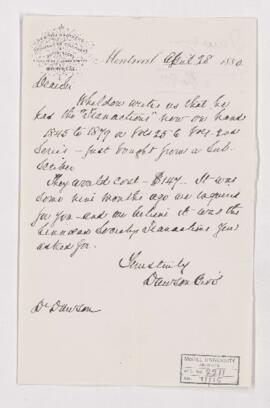 DAWSON BROTHERS
MONTREAL
Montreal April 28 1880
Dear Sir
Wheldon writes us that he
has the "Transactions" now on hand
1845 to 1879 or Vols 25 to Vol. 2nd
Series – just bought from a Sub-
scriber
They would cost – $147. – It was
some nine months ago we inquired
for you – and we believe it was the
Linnean Society's Transactions you
asked for.
Yours truly
Dawson Bros
Dr Dawson
McGILL UNIVERSITY
ARCHIVES
ACC. NO. 2211
REF.